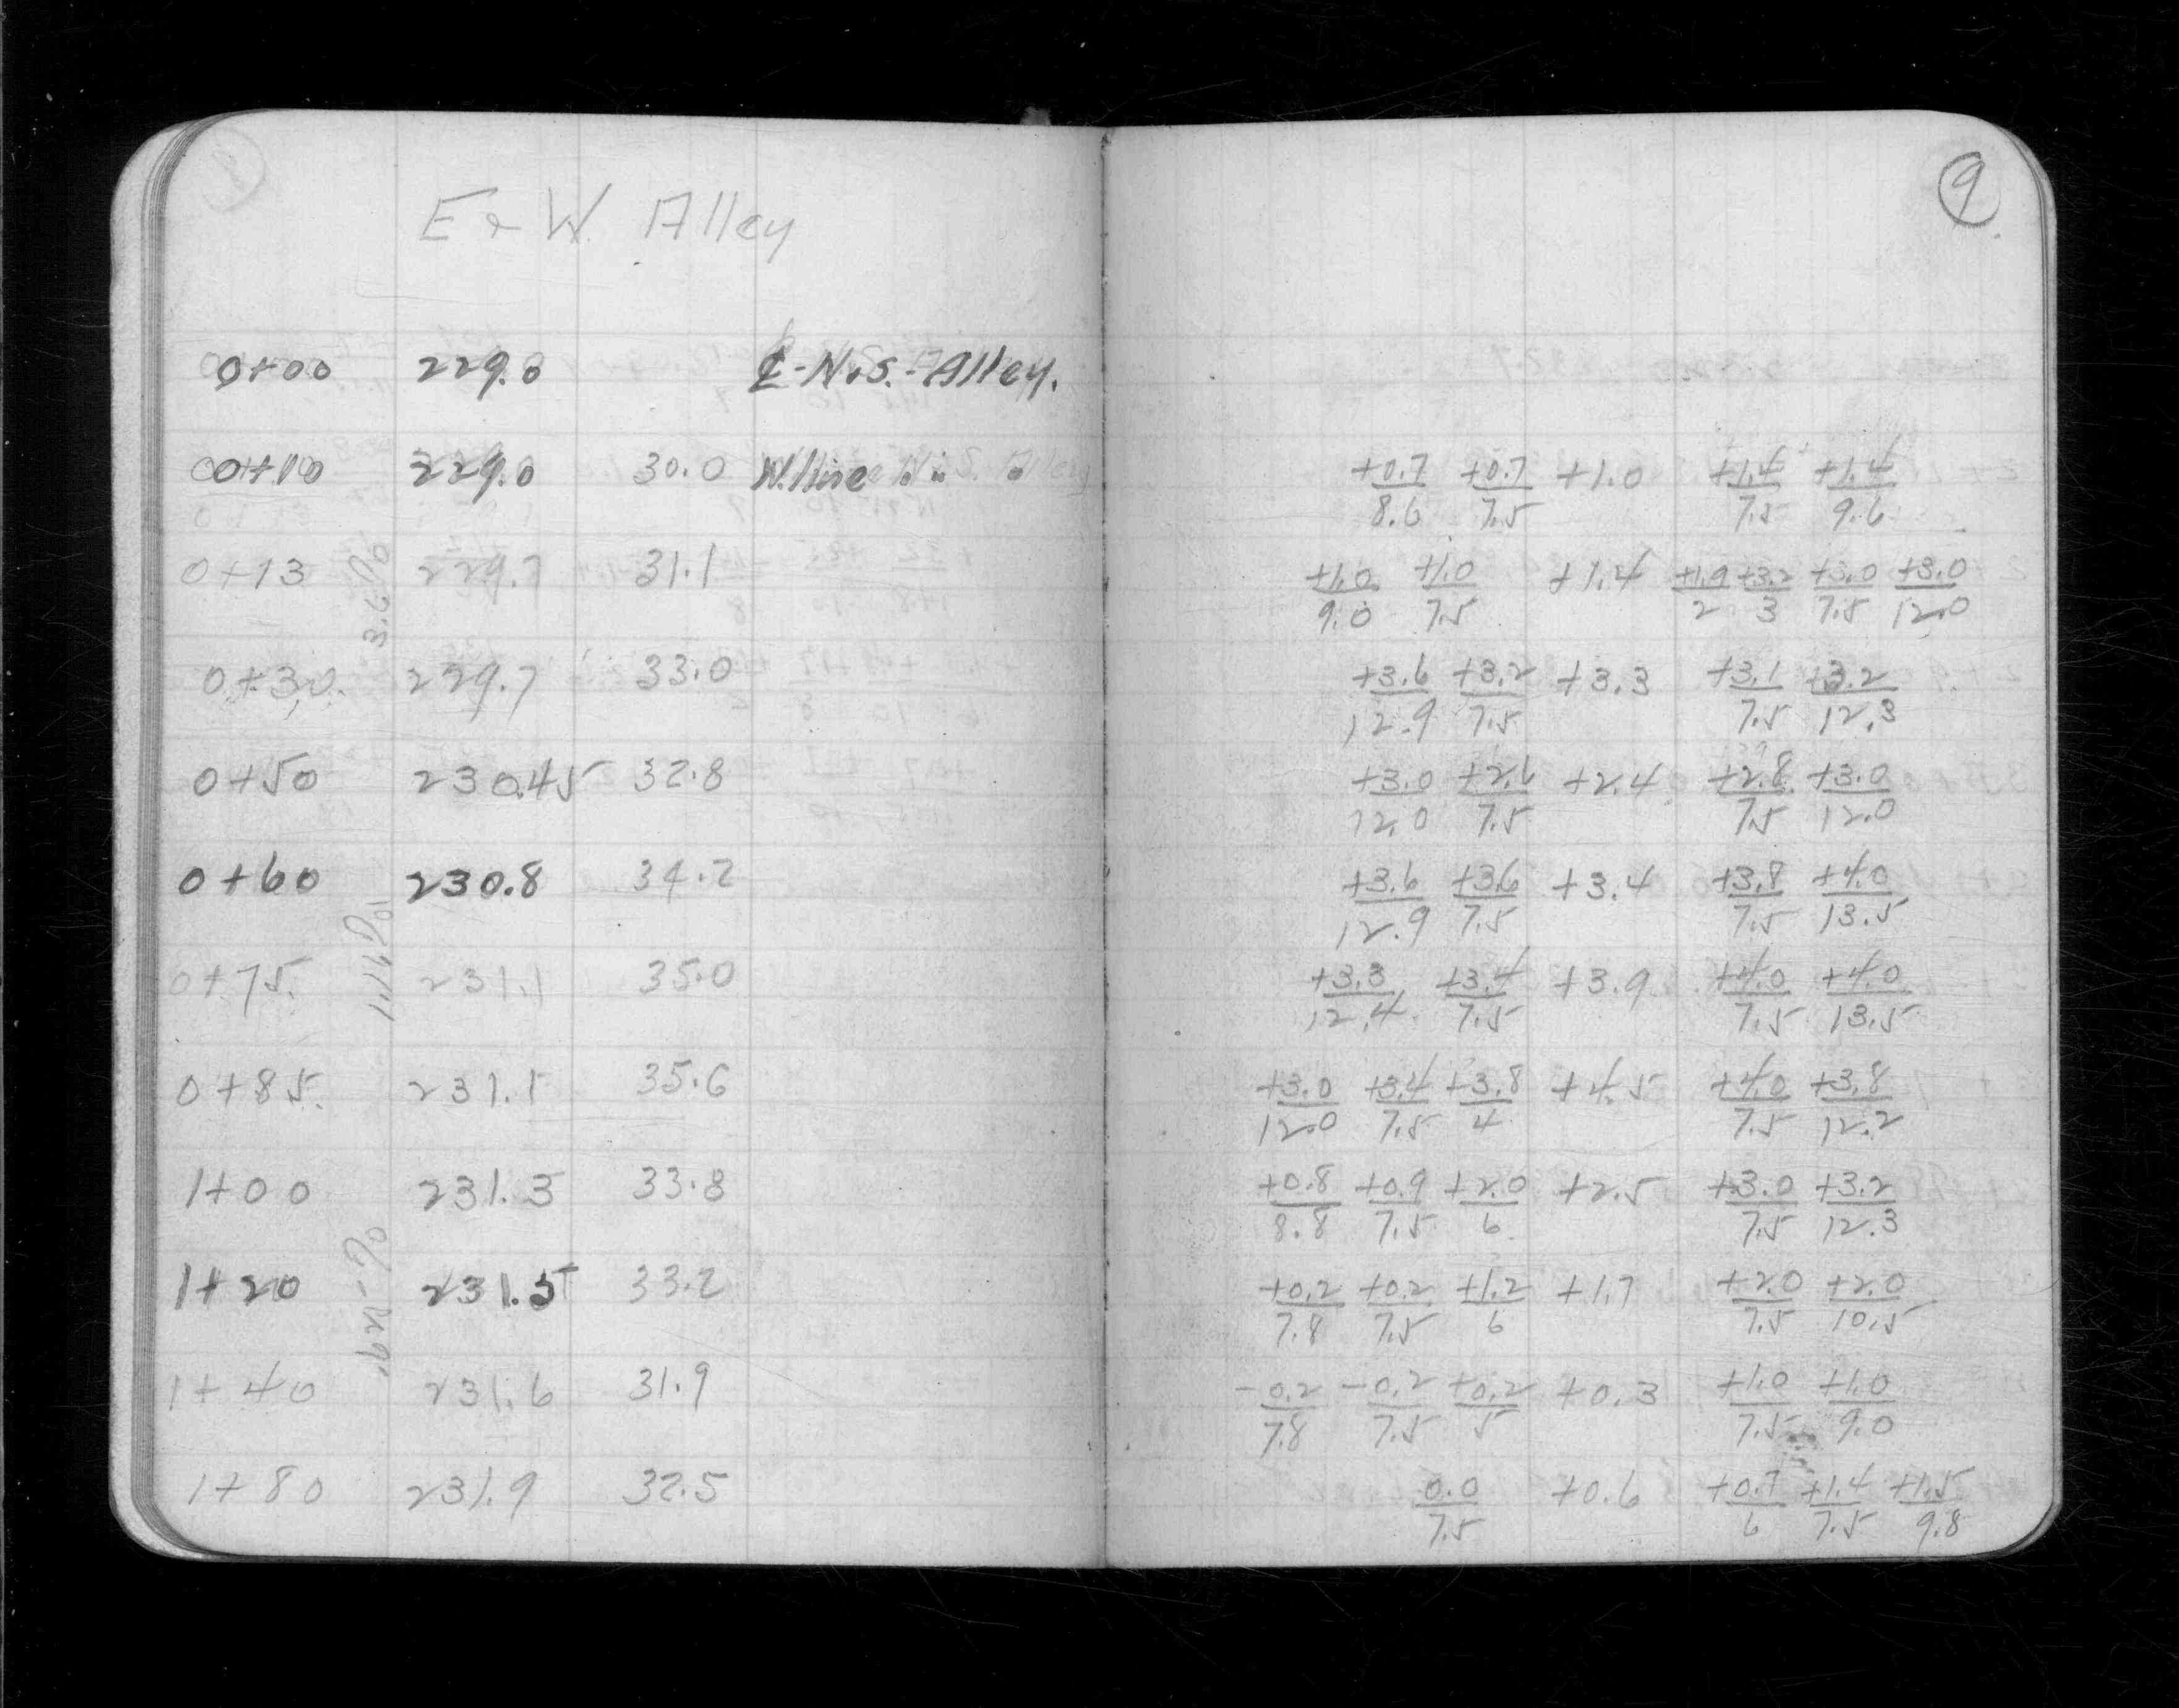 E & W. Alley
9
0+00 229.0 ℄-N.S.-Alley.
0+10 229.0 30.0 W. line N. S. +0.7/8.6 +0.7/7.5 +1.0 +1.4/7.5 +1.4/9.6
0+13 229.7 31.1 +1.0/9.0 +1.0/7.5 +1.4 +1.9/2 +3.2/3 +3.0/7.5 +3.0/12.0
3.6%
0+30. 229.7 33.0 +3.6/12.9 +3.2/7.5 +3.3 +3.1/7.5 +3.2/12.3
0+50 230.45 32.8 +3.0/12.0 +2.6/7.5 +2.4 +2.8/7.5 +3.0/12.0
0+60 230.8 34.2 +3.6/12.9 +3.6/7.5 +3.4 +3.8/7.5 +4.0/13.5
1.16%
0+75. 231.1 35.0 +3.3/12.4 +3.4/7.5 +3.9 +4.0/7.5 +4.0/13.5
0+85. 231.1 35.6 +3.0/12.0 +3.4/7.5 +3.8/4 +4.5 +4.0/7.5 +3.8/12.2
1+00 231.3 33.8 +0.8/8.8 +0.9/7.5 +2.0/6 +2.5 +3.0/7.5 +3.2/12.3
1+20 231.5 33.2 +0.2/7.8 +0.2/7.5 +1.2/6 +1.7 +2.0/7.5 +2.0/10.5
1+40 231.6 31.9 -0.2/7.8 -0.2/7.5 +0.2/5 +0.3 +1.0/7.5 +1.0/9.0
1+80 231.9 32.5 0.0/7.5 +0.6 +0.7/6 +1.4/7.5 +1.5/9.8